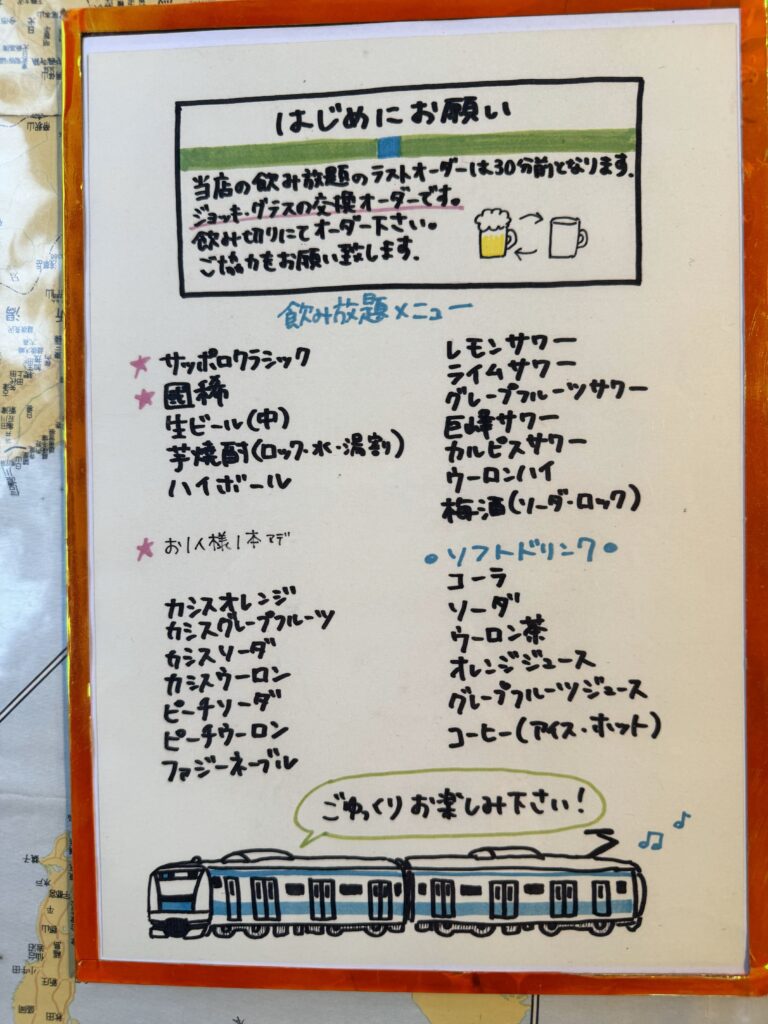 はじめにお願い
当店の飲み放題のラストオーダーは30分前となります.
ジョッキ・グラスの交換オーダーです。
飲み切りにてオーダー下さい。
ご協力をお願い致します.
飲み放題メニュー
★ サッポロクラシック
★ 國稀
生ビール(中)
芋焼酎(ロック・水・湯割)
ハイボール
★ お1人様1本マデ
カシスオレンジ
カシスグレープフルーツ
カシスソーダ
カシスウーロン
ピーチソーダ
ピーチウーロン
ファジーネーブル
レモンサワー
ライムサワー
グレープフルーツサワー
巨峰サワー
カルピスサワー
ウーロンハイ
梅酒(ソーダ・ロック)
・ソフトドリンク・
コーラ
ソーダ
ウーロン茶
オレンジジュース
グレープフルーツジュース
コーヒー(アイス・ホット)
ごゆっくりお楽しみ下さい!